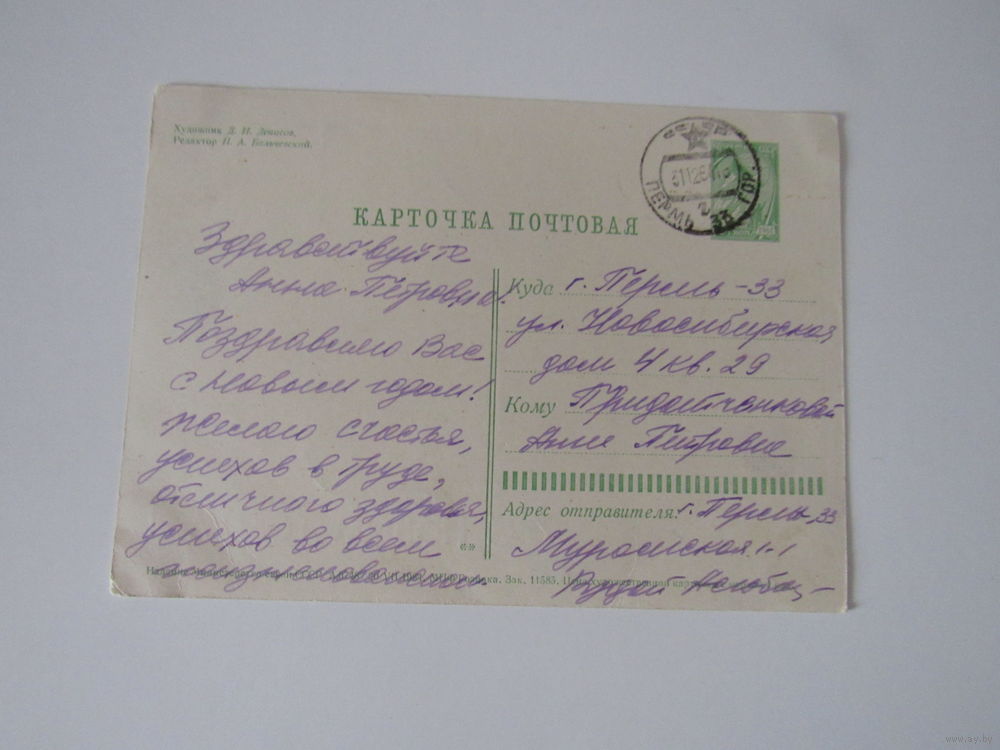 Художник Д. И. Денисов.
Редактор Н. А. Бельчевский.
ПЕРМЬ 33 ГОР.
КАРТОЧКА ПОЧТОВАЯ
Здравствуйте
Анна Петровна!
Поздравляю Вас
с Новым годом!
желаю счастья,
успехов в труде,
отличного здоровья,
успехов во всем
Куда г. Пермь-33
ул. Новосибирская
дом 4 кв. 29
Кому
Анне Петровне
Адрес отправителя: г. Пермь, 33
1-1
Зак. 11585.
www.ay.by